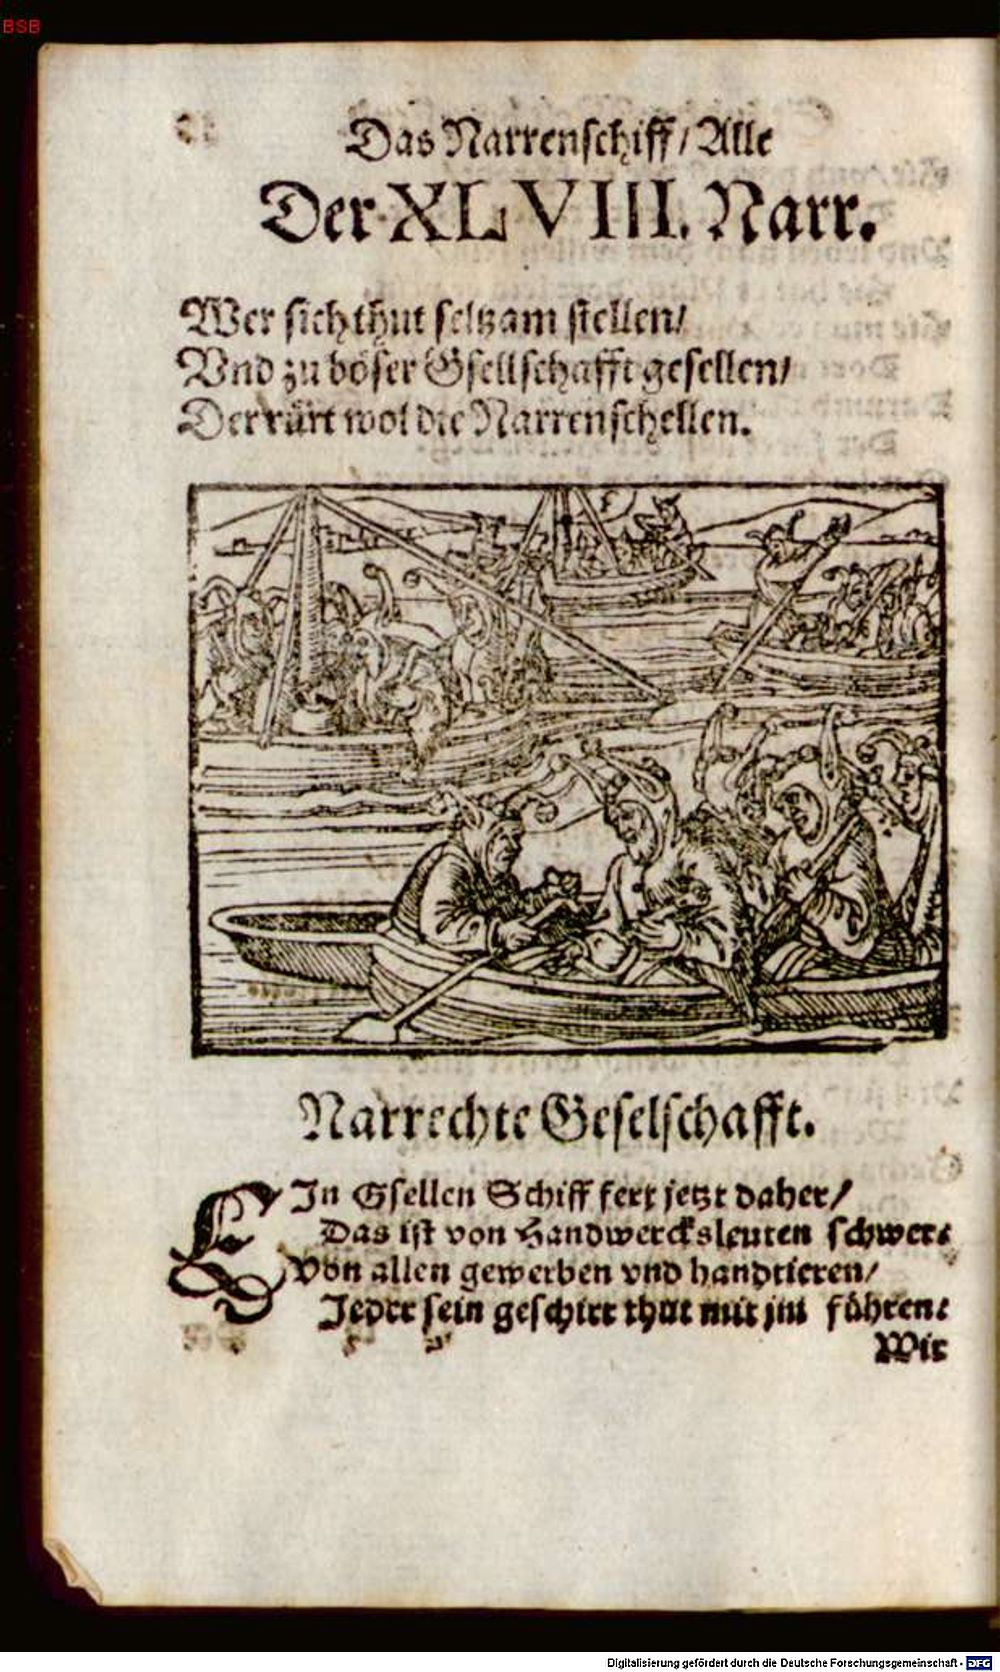 BSB
Das Narrenschiff / Alle
Der XLVIII. Narr.
Wer sich thut seltzam stellen /
Vnd zu böser Gsellschafft gesellen /
Der rürt wol die Narrenschellen.
Narrechte Geselschafft.
EIn Gsellen Schiff fert jetzt daher /
Das ist von Handwercksleuten schwer:
Von allen gewerben vnd handtieren /
Jeder sein geschirr thut mit jm führen:
Wir
Digitalisierung gefördert durch die Deutsche Forschungsgemeinschaft - DFG